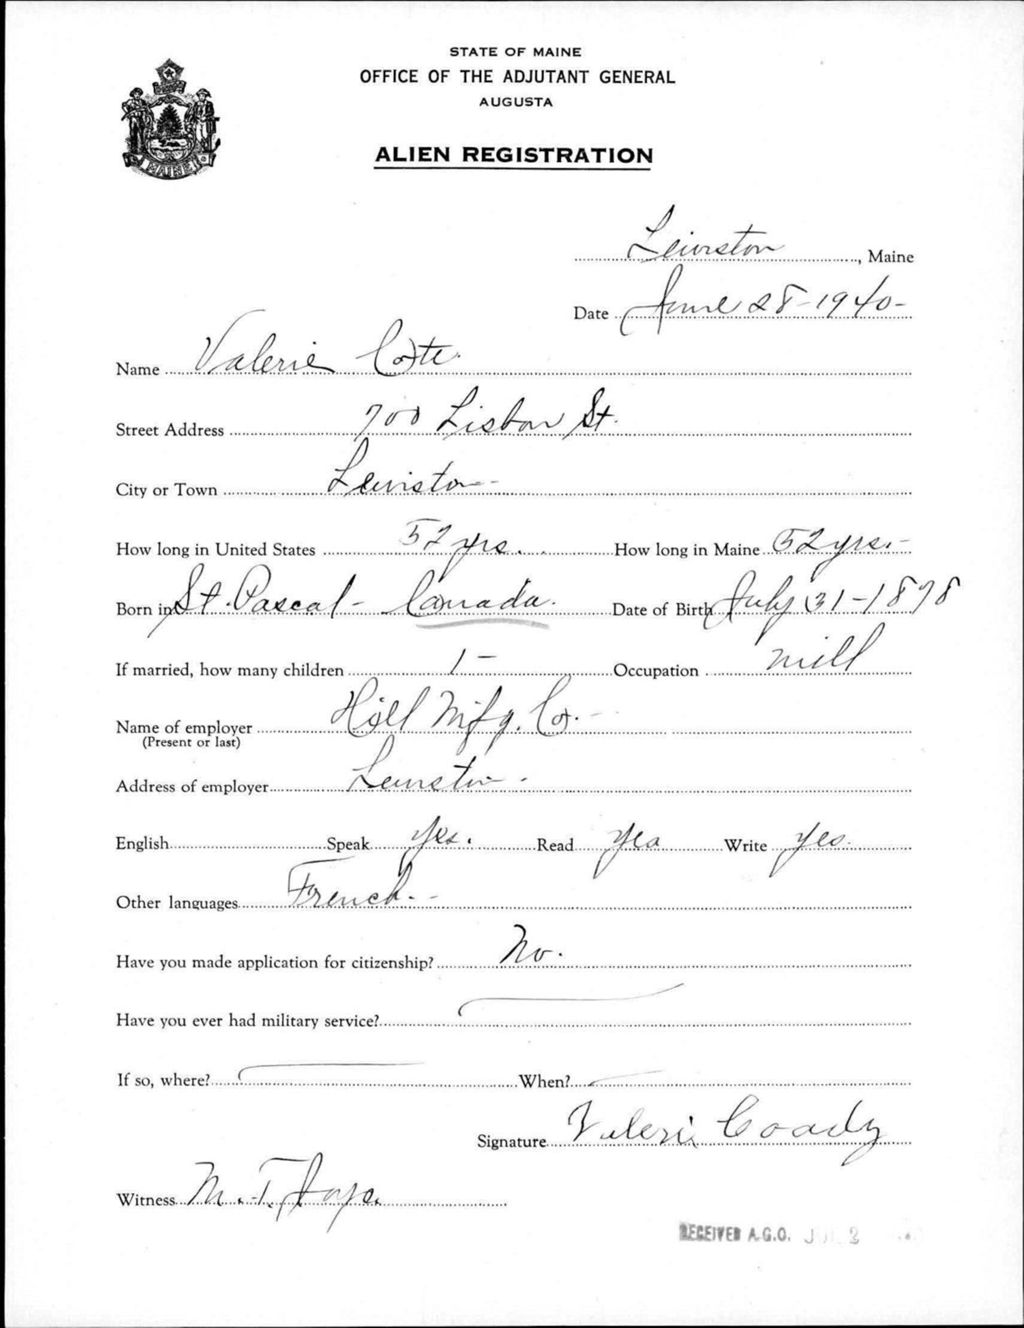 STATE OF MAINE
OFFICE OF THE ADJUTANT GENERAL
AUGUSTA
MAINE
ALIEN REGISTRATION
Lewiston, Maine
Date June 28-1940-
Name Valerie Cote.
Street Address 700 Lisbon St.
City or Town Lewiston-
How long in United States 52 yrs. How long in Maine 52 yrs.-
Born in St. Pascal - Canada. Date of Birth July 31-1878
If married, how many children 1- Occupation mill
Name of employer Hill Mfg. Co.-
(Present or last)
Address of employer Lewiston-
English Speak Yes. Read Yes Write Yes.
Other languages French.-
Have you made application for citizenship? No.
Have you ever had military service?
If so, where? When?
Signature Valeri Coady
Witness M. T.
RECEIVED A.G.O. 2